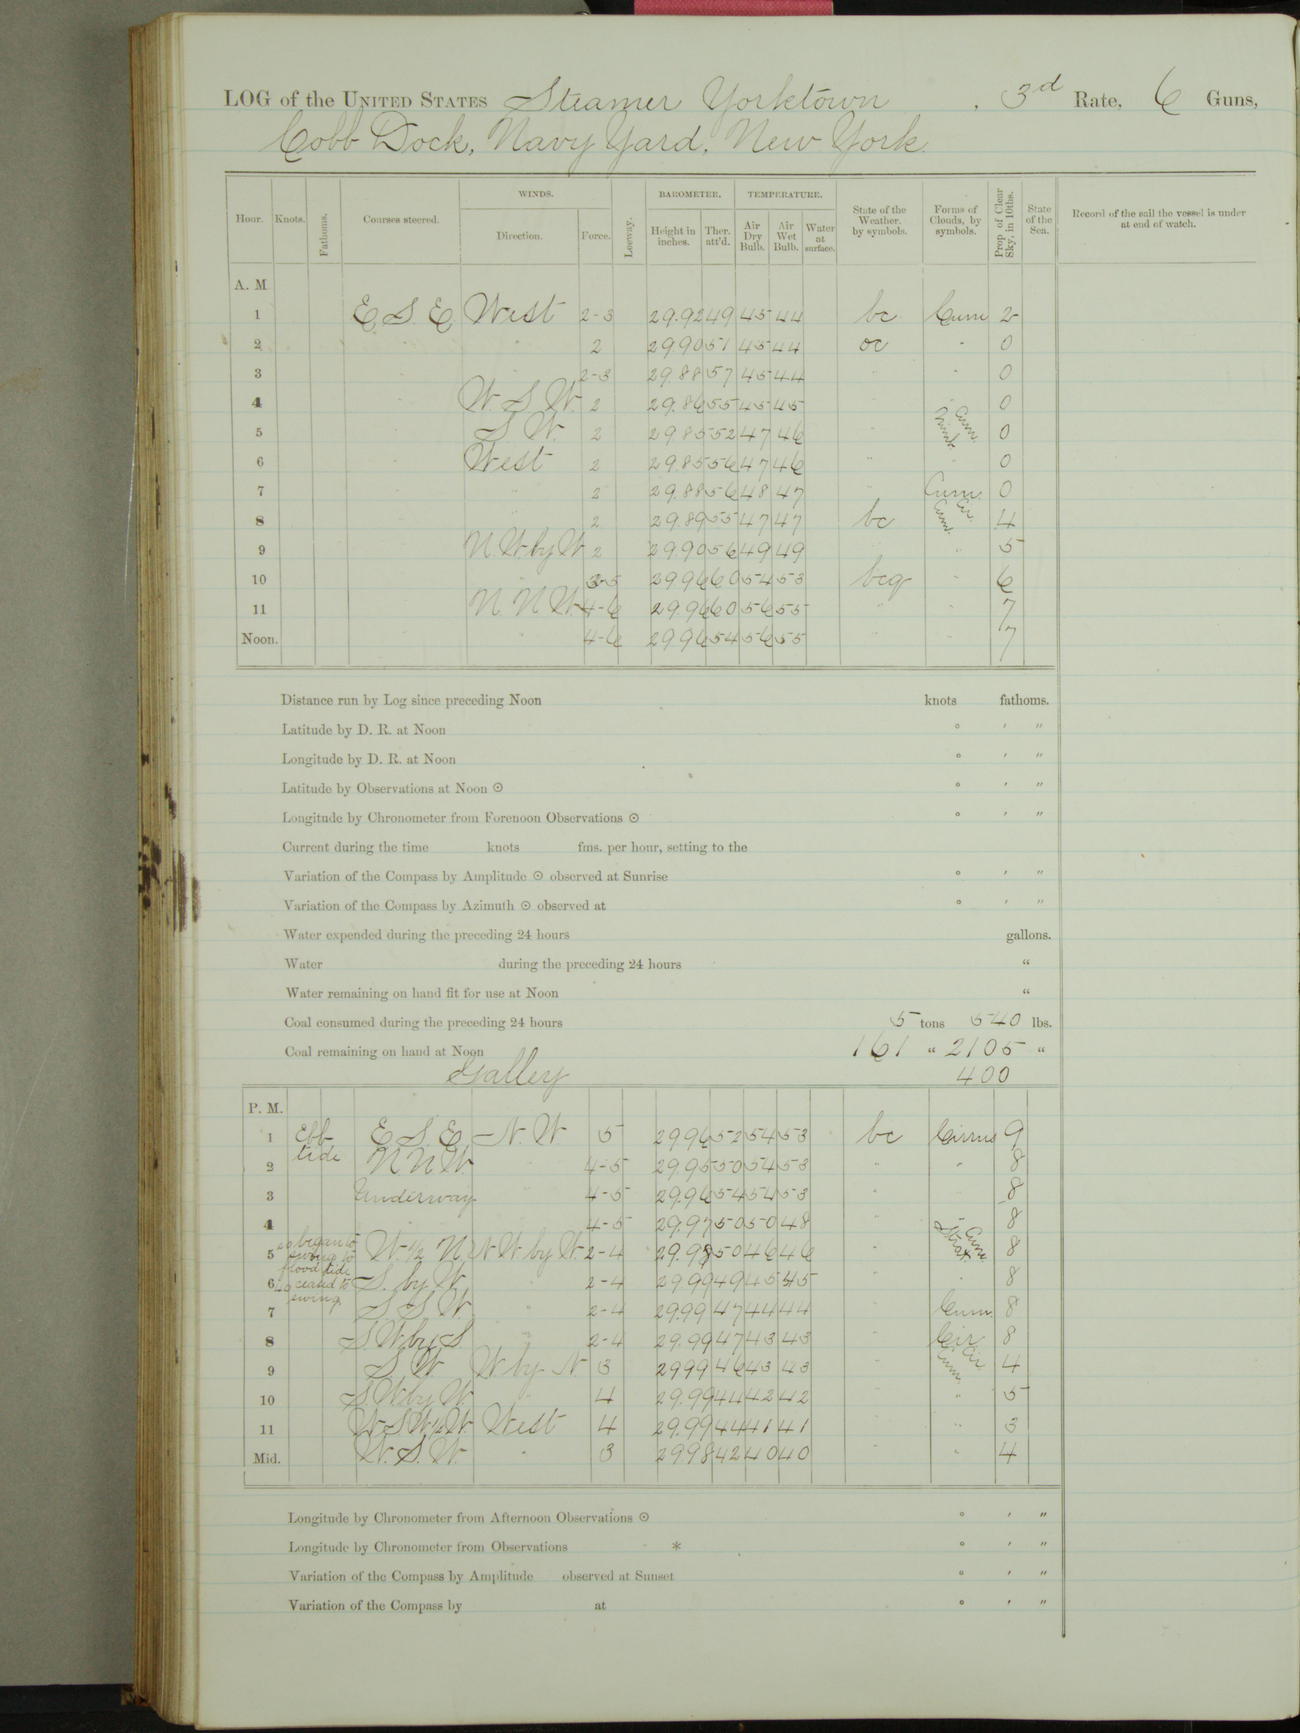 LOG of the UNITED STATES Steamer Yorktown, 3rd Rate, 6 Guns,
Cobb Dock, Navy Yard, New York.
WINDS. BAROMETER. TEMPERATURE.
Hour. Knots. Fathoms. Courses steered. Direction. Force. Leeway. Height in inches. Ther. att'd. Air Dry Bulb. Air Wet Bulb. Water at surface. State of the Weather, by symbols. Forms of Clouds, by symbols. Prop. of Clear Sky, in 10ths. State of the Sea. Record of the sail the vessel is under at end of watch.
A. M.
1 E. S. E. West 2-3 29.92 49 45 44 bc Cum 2
2 " " 2 29.90 51 45 44 oc " 0
3 " " 2-3 29.88 57 45 44 " " 0
4 " W. S. W. 2 29.86 55 45 45 " " 0
5 " S. W. 2 29.85 52 47 46 " Cum. Nimb. 0
6 " West 2 29.85 56 47 46 " " 0
7 " " 2 29.88 56 48 47 " Cum. 0
8 " " 2 29.89 55 47 47 bc Cir. Cum. 4
9 " N. W. by W. 2 29.90 56 49 49 " " 5
10 " " 3-5 29.96 60 54 53 bcq " 6
11 " N. N. W. 4-6 29.96 60 56 55 " " 7
Noon. " " 4-6 29.96 54 56 55 " " 7
Distance run by Log since preceding Noon knots fathoms.
Latitude by D. R. at Noon ° ′ ″
Longitude by D. R. at Noon ° ′ ″
Latitude by Observations at Noon ☉ ° ′ ″
Longitude by Chronometer from Forenoon Observations ☉ ° ′ ″
Current during the time knots fms. per hour, setting to the
Variation of the Compass by Amplitude ☉ observed at Sunrise ° ′ ″
Variation of the Compass by Azimuth ☉ observed at ° ′ ″
Water expended during the preceding 24 hours gallons.
Water during the preceding 24 hours “
Water remaining on hand fit for use at Noon “
Coal consumed during the preceding 24 hours 5 tons 540 lbs.
Coal remaining on hand at Noon 161 “ 2105 “
Galley 400
P. M.
1 Ebb E. S. E. N. W. 5 29.96 52 54 53 bc Cirrus 9
2 tide N. N. W. " 4-5 29.95 50 54 53 " " 8
3 Underway " 4-5 29.96 54 54 53 " " 8
4 " 4-5 29.97 50 50 48 " " 8
began to
5 swing to W. ½ N. N. W. by W. 2-4 29.98 50 46 46 " Cum. Strat. 8
flood tide
6 ceased to S. by W. " 2-4 29.99 49 45 45 " " 8
swing.
7 S. S. W. " 2-4 29.99 47 44 44 " Cum. 8
8 S. W. by S. " 2-4 29.99 47 43 43 " Cir. 8
9 S. W. W. by N. 3 29.99 46 43 43 " Cir. Cum. 4
10 S. W. by W. " 4 29.99 44 42 42 " " 5
11 W. S. W. ½ W. West 4 29.99 44 41 41 " " 3
Mid. W. S. W. " 3 29.98 42 40 40 " " 4
Longitude by Chronometer from Afternoon Observations ☉ ° ′ ″
Longitude by Chronometer from Observations * ° ′ ″
Variation of the Compass by Amplitude observed at Sunset ° ′ ″
Variation of the Compass by at ° ′ ″